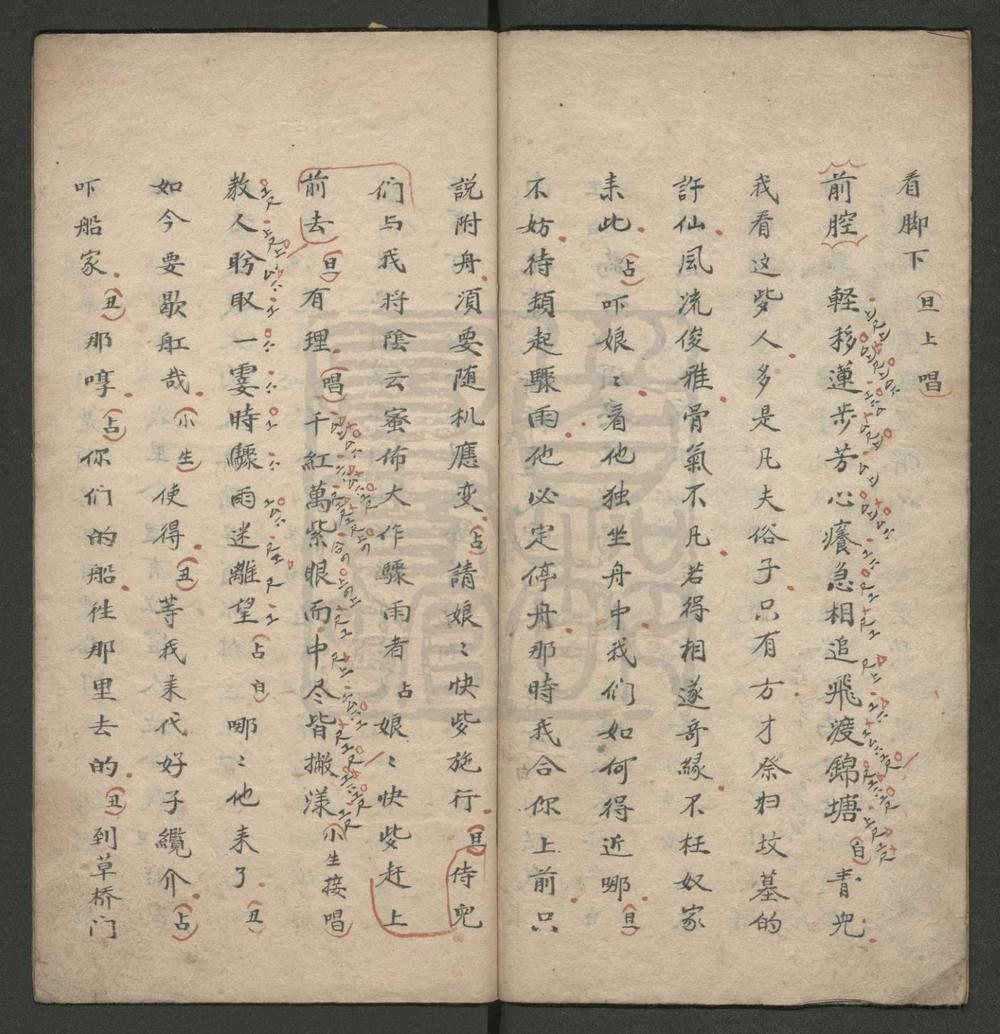 看脚下（旦上唱）
前腔　軽移蓮步芳心癢急相追飛渡錦塘（白）青児
我看这些人多是凡夫俗子只有方才祭扫坟墓的
許仙風流俊雅骨氣不凡若得相遂奇緣不枉奴家
来此（占）吓娘〻看他独坐舟中我们如何得近哪（旦）
不妨待頬起驟雨他必定停舟那時我合你上前只
説附舟湏要随机應变（占）請娘〻快些施行（旦）侍児
们与我将陰云蜜佈大作驟雨者　占娘〻快些赶上
前去（旦）有理（唱）千紅萬紫眼而中尽皆撇漾（小生接唱）
教人盻取一霎時驟雨迷離望（占白）哪〻他来了（丑）
如今要歇舡哉（小生）使得（丑）等我来代好子纜介（占）
吓船家（丑）那哼（占）你们的船徃那里去的（丑）到草桥门